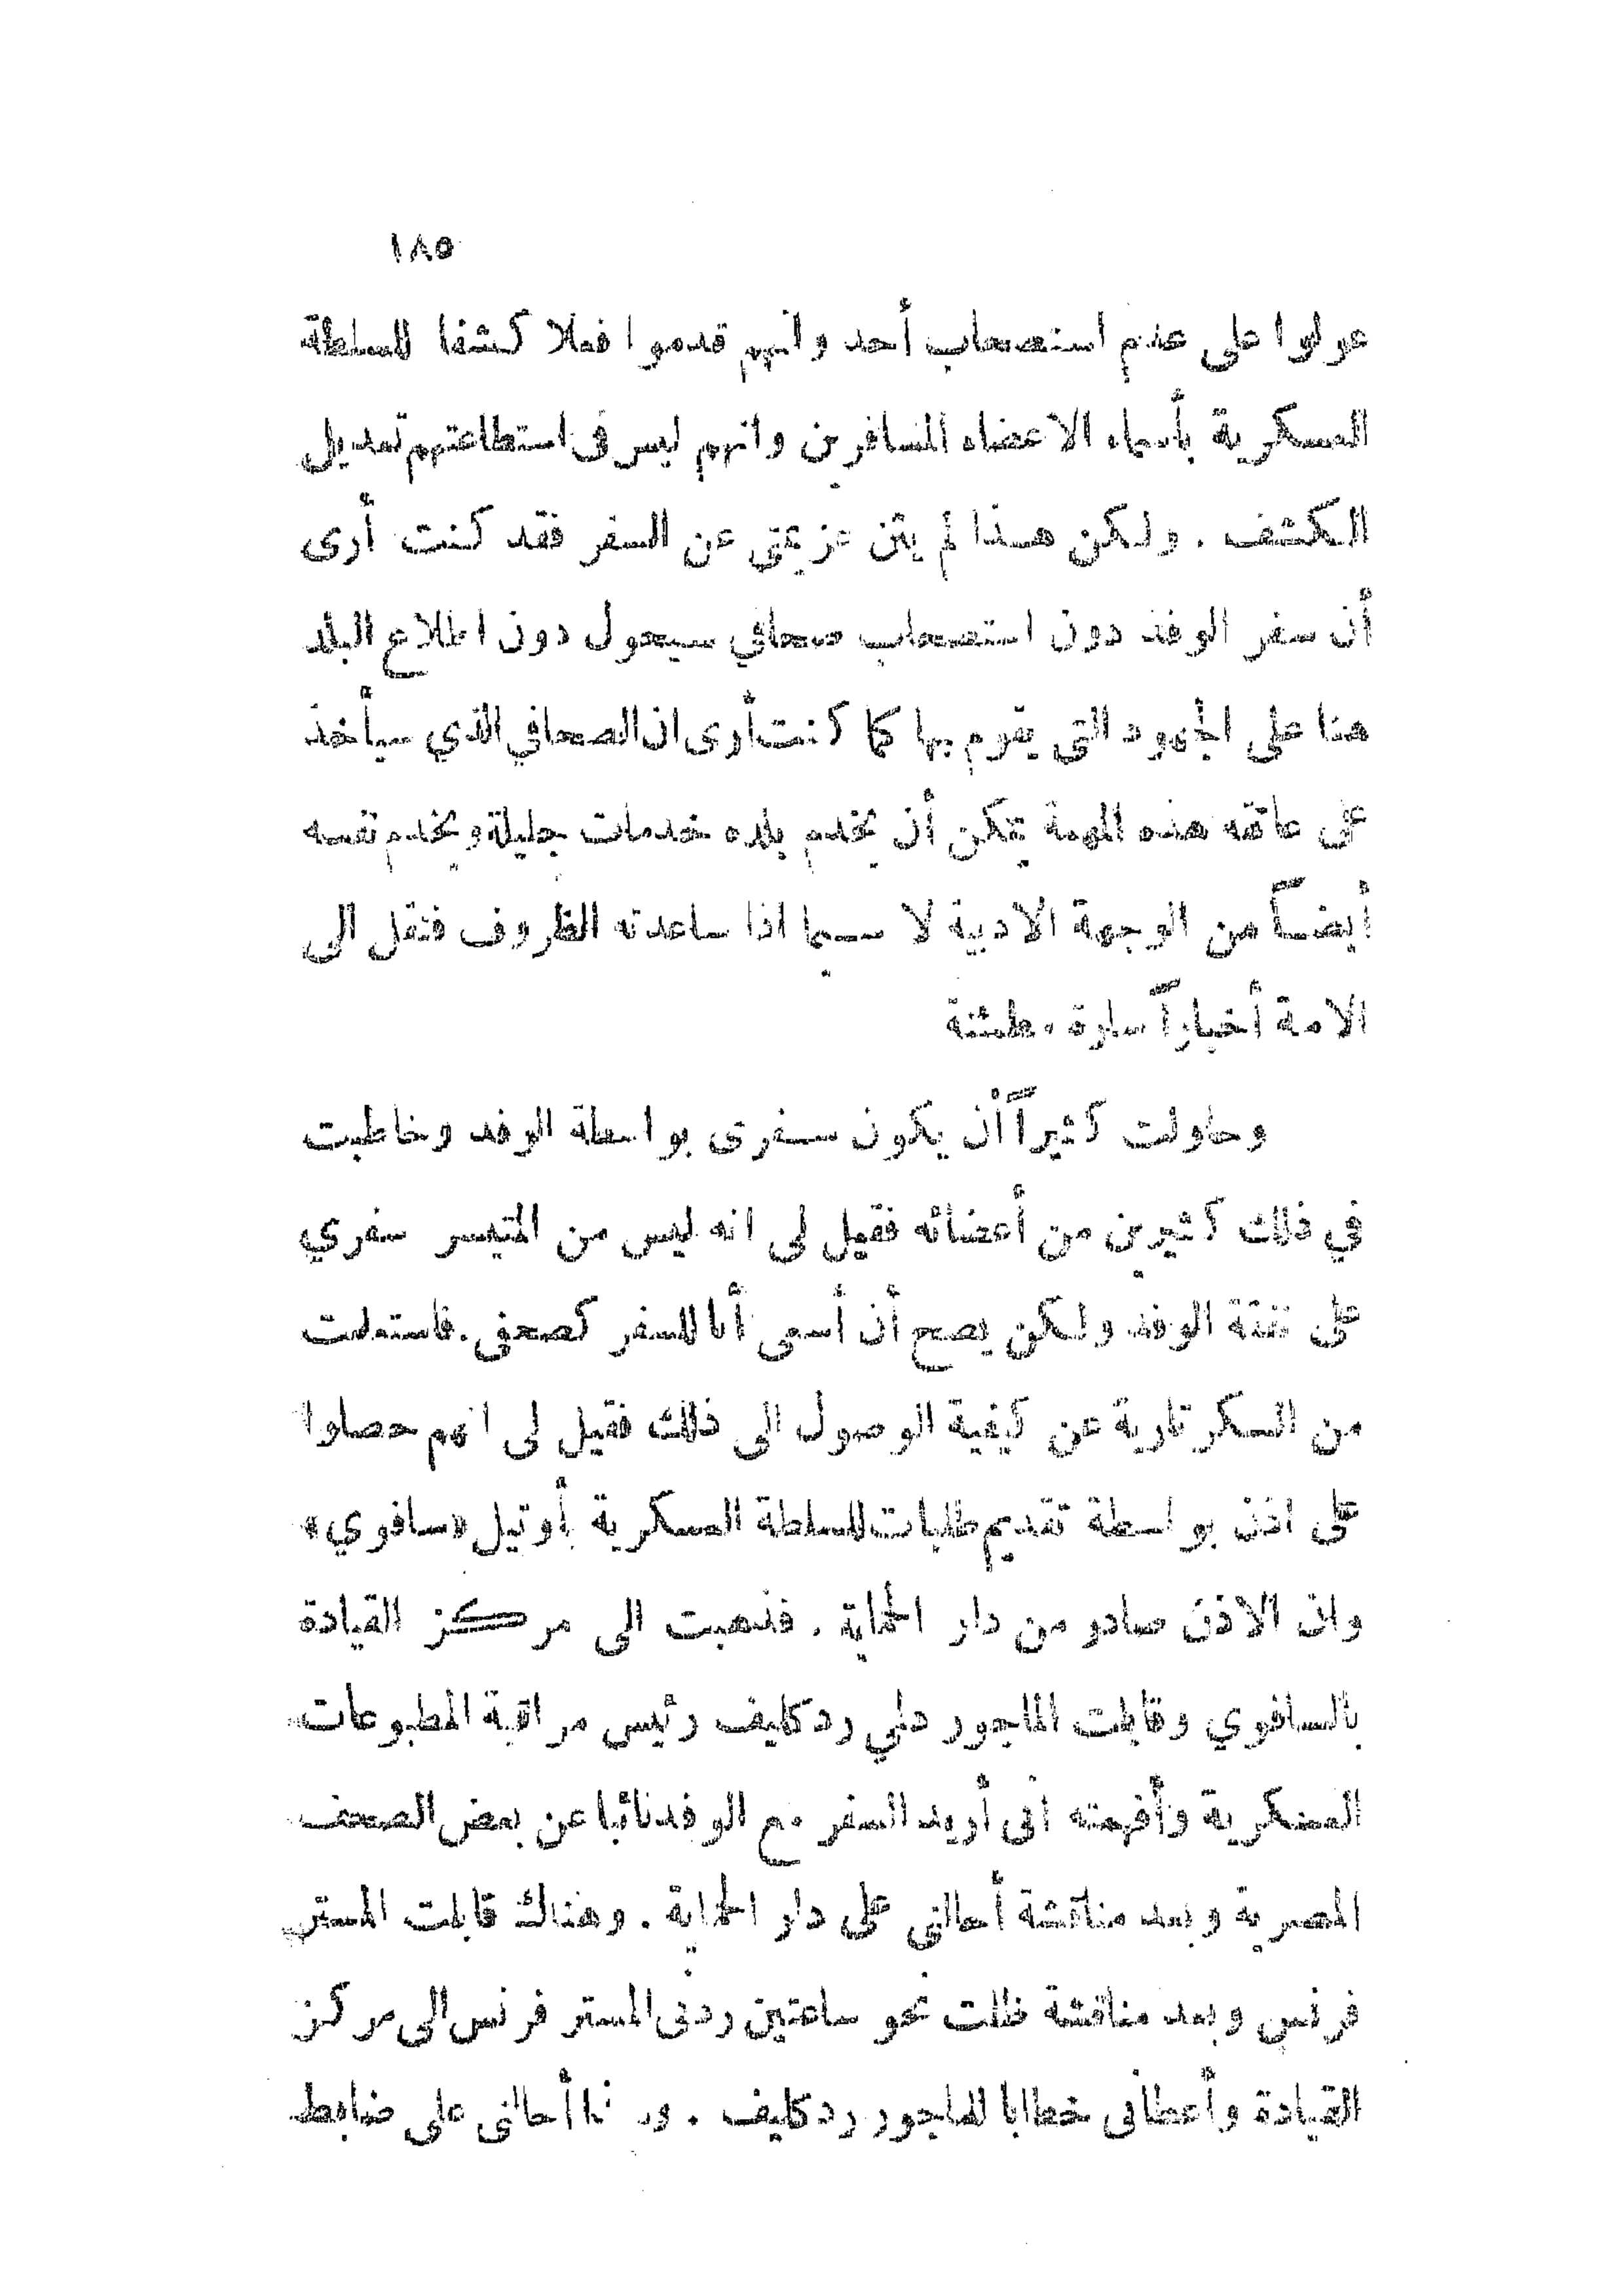 ١٨٥
عولوا على عدم استصحاب أحد وانهم قدموا فعلا كشفا للسلطة
العسكرية بأسماء الاعضاء المسافرين وانهم ليس في استطاعتهم تعديل
الكشف . ولكن هذا لم يثن عزيمتي عن السفر فقد كنت أرى
أن سفر الوفد دون استصحاب صحافي سيحول دون اطلاع البلد
هنا على الجهود التي يقوم بها كما كنت أرى ان الصحافي الذي سيأخذ
على عاتقه هذه المهمة يمكن أن يخدم بلاده خدمات جليلة ويخدم نفسه
أيضاً من الوجهة الادبية لا سيما اذا ساعدته الظروف فنقل الى
الامة أخباراً سارة مطمئنة
وحاولت كثيراً أن يكون سفرى بواسطة الوفد وخاطبت
في ذلك كثيرين من أعضائه فقيل لى انه ليس من المتيسر سفري
على نفقة الوفد ولكن يصح أن أسعى أنا للسفر كصحفي . فاستعلمت
من السكرتارية عن كيفية الوصول الى ذلك فقيل لى انهم حصلوا
على اذن بواسطة تقديم طلبات للسلطة العسكرية بأوتيل «سافوي»
وان الاذن صادر من دار الحماية . فذهبت الى مركز القيادة
بالسافوي وقابلت الماجور دلي ردكليف رئيس مراقبة المطبوعات
العسكرية وأفهمته أنى أريد السفر مع الوفد نائبا عن بعض الصحف
المصرية وبعد مناقشة أحالني على دار الحماية . وهناك قابلت المستر
فرنس وبعد مناقشة ظلت نحو ساعتين ردنى المستر فرنس الى مركز
القيادة وأعطانى خطابا للماجور ردكليف . وهذا أحالنى على ضابط